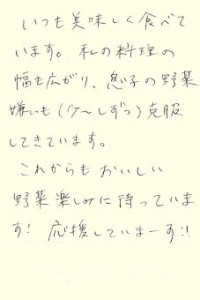 いつも美味しく食べて
います。私の料理の
幅も広がり、息子の野菜
嫌いも(少〜しずつ)克服
してきています。
これからもおいしい
野菜楽しみに待っていま
す! 応援していまーす!!